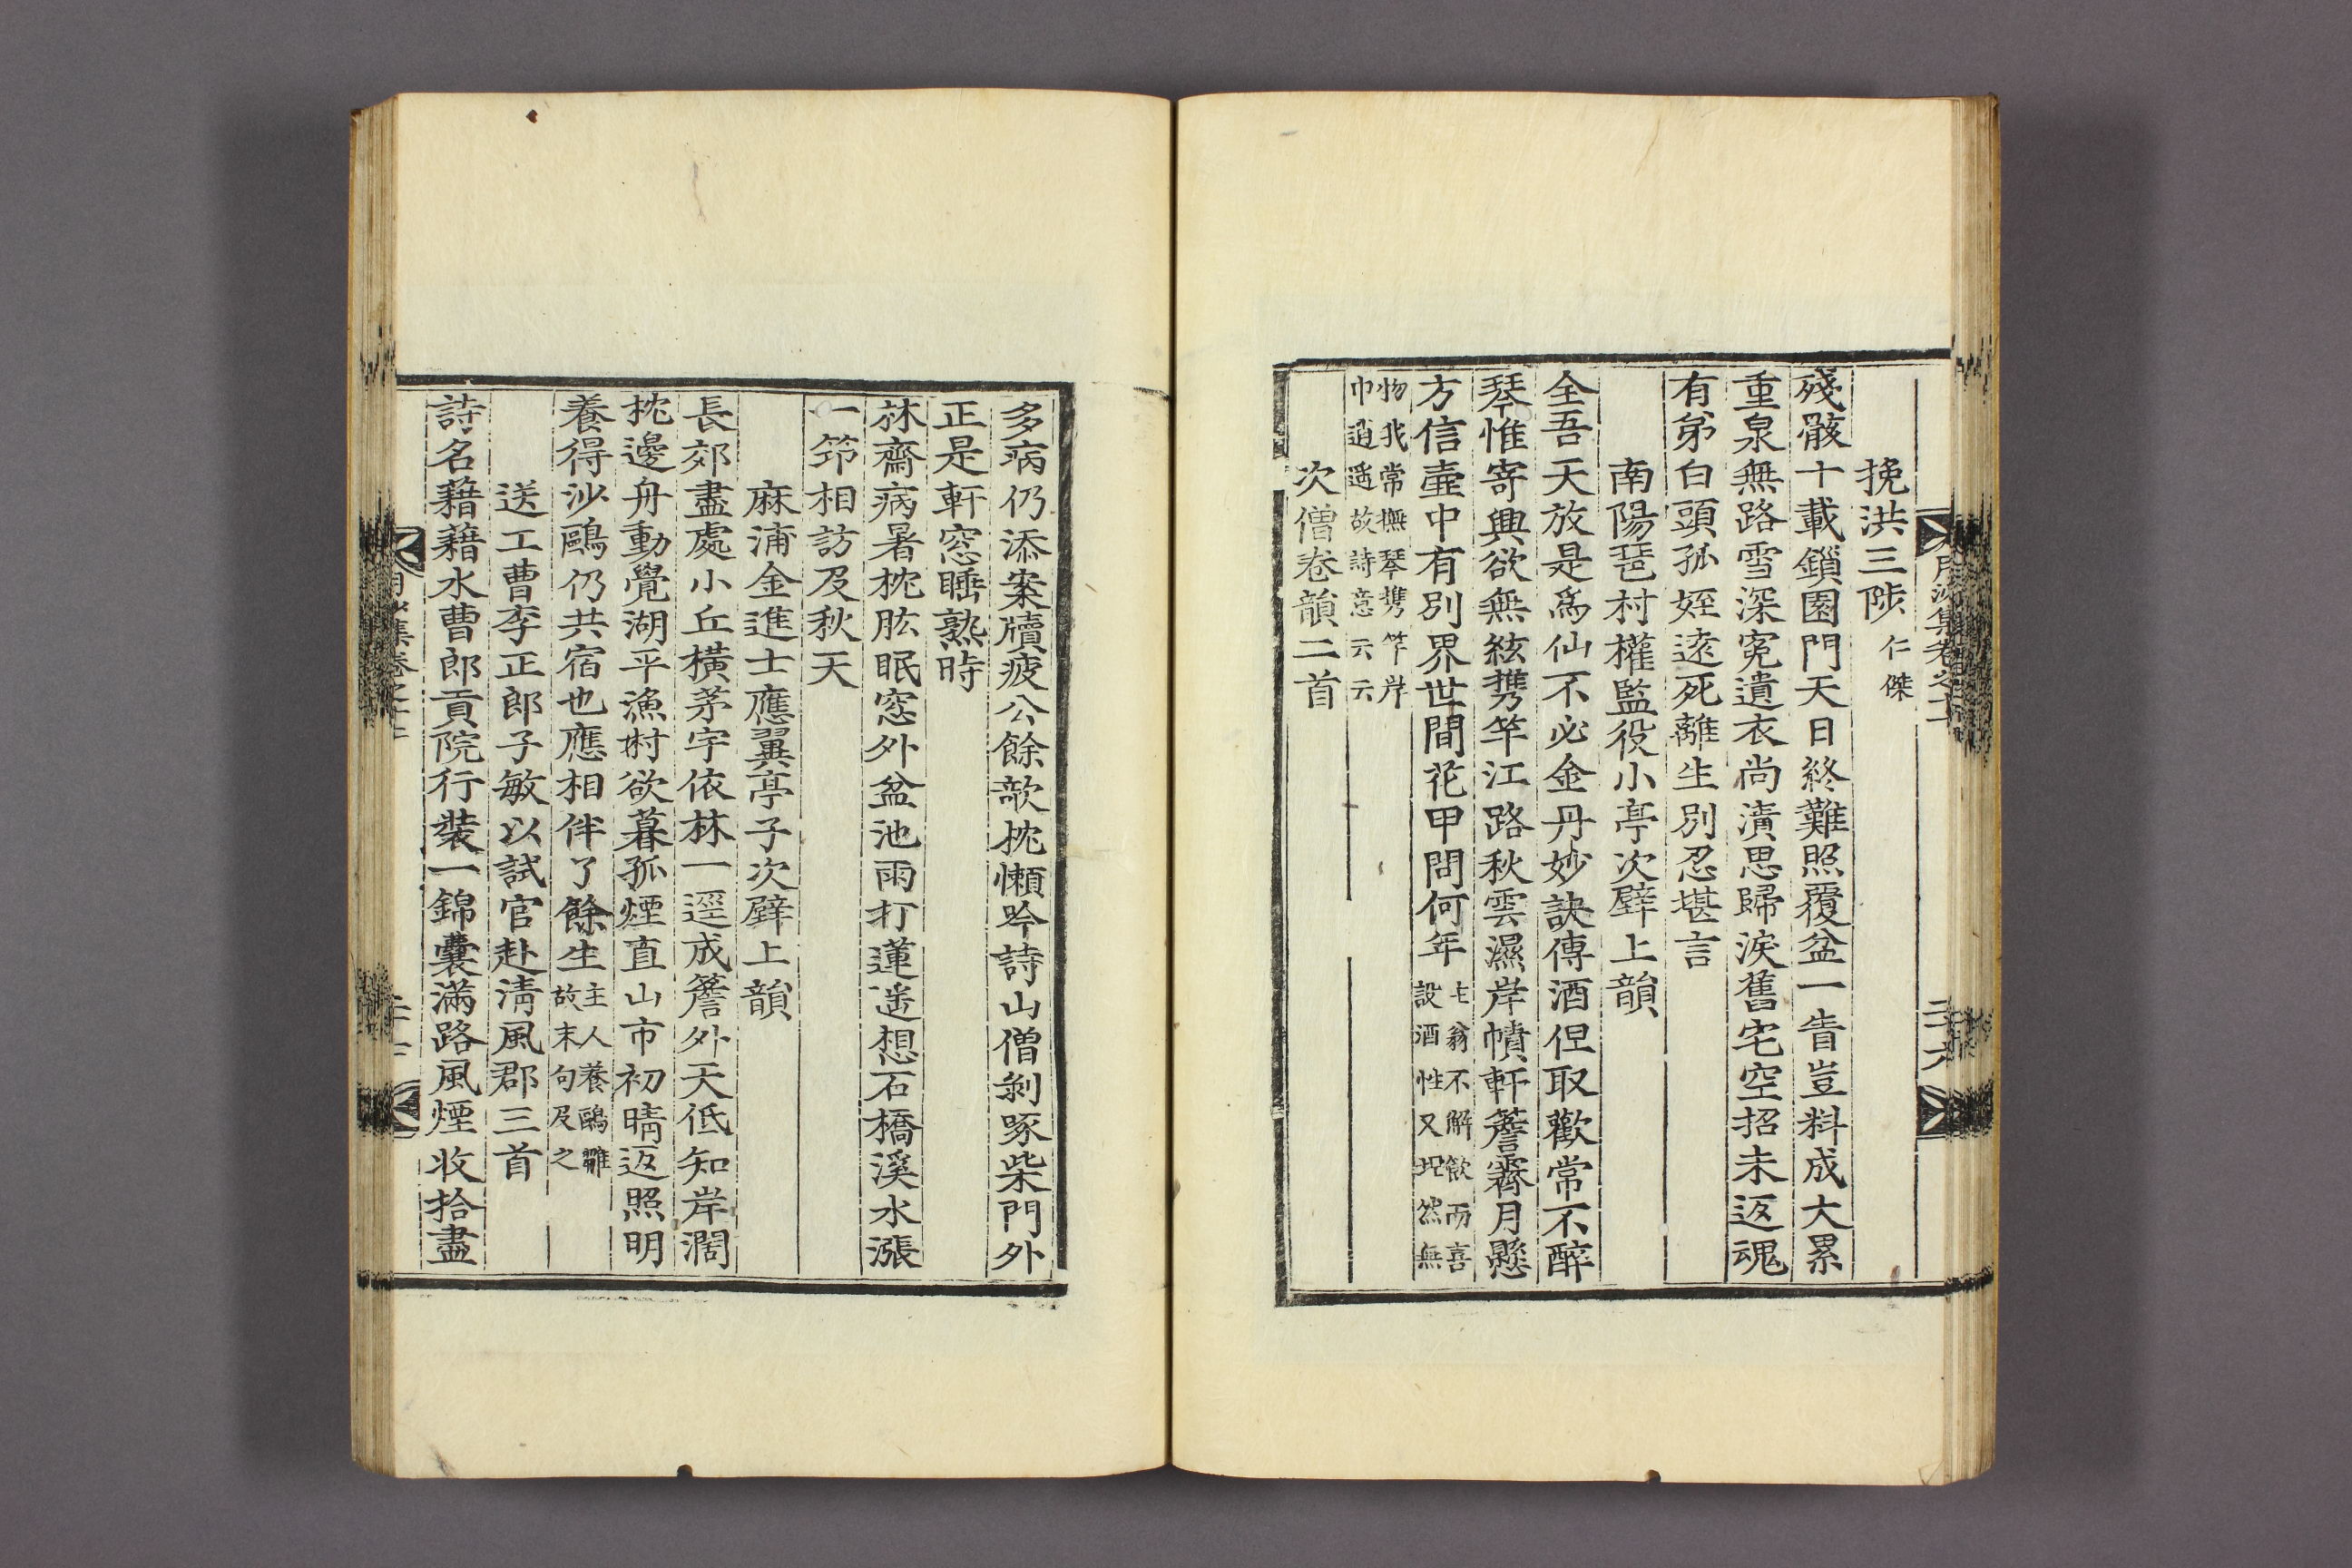 月沙集卷之十
二十六
挽洪三陟 仁傑
殘骸十載鎖園門天日終難照覆盆一眚豈料成大累
重泉無路雪深冤遺衣尚漬思歸淚舊宅空招未返魂
有弟白頭孤姪遠死離生別忍堪言
南陽琵村權監役小亭次壁上韻
全吾天放是爲仙不必金丹妙訣傳酒但取歡常不醉
琴惟寄興欲無絃携竿江路秋雲濕岸幘軒簷霽月懸
方信壺中有別界世間花甲問何年 主翁不解飮而喜
設酒性又坦然無
物我常撫琴携竿岸
巾逍遙故詩意云云
次僧卷韻二首
多病仍添案牘疲公餘敧枕懶吟詩山僧剝啄柴門外
正是軒窓睡熟時
林齋病暑枕肱眠窓外盆池雨打蓮遙想石橋溪水漲
一笻相訪及秋天
麻浦金進士應翼亭子次壁上韻
長郊盡處小丘橫茅宇依林一逕成簷外天低知岸濶
枕邊舟動覺湖平漁村欲暮孤煙直山市初晴返照明
養得沙鷗仍共宿也應相伴了餘生 主人養鷗雛
故末句及之
送工曹李正郎子敏以試官赴淸風郡三首
詩名藉藉水曹郎貢院行裝一錦囊滿路風煙收拾盡